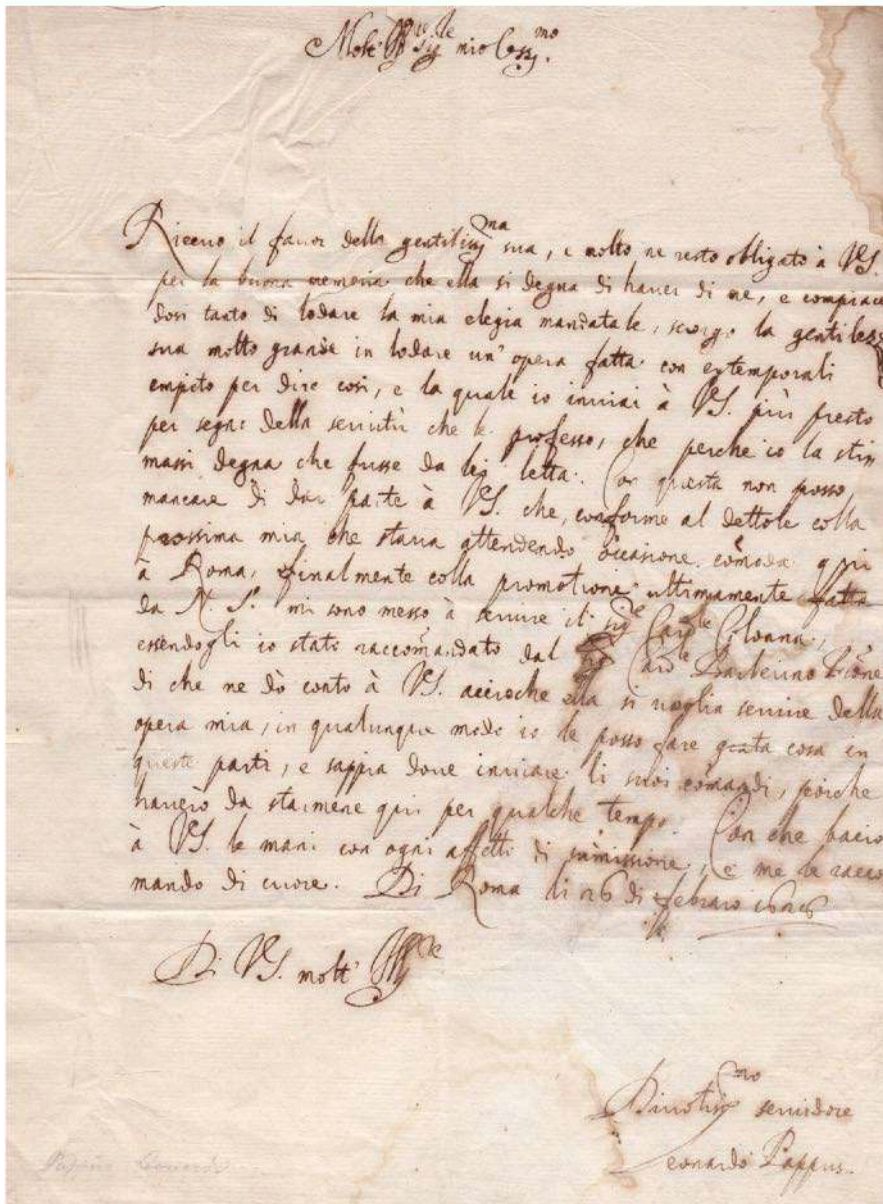 Molt' Ill.re Sig.re mio Oss.mo
Riceuo il fauor della gentiliss.ma sua, e molto ne resto obligato à VS.
per la buona memoria che ella si degna di hauer di me, e compiacen
dosi tanto di lodare la mia elegia mandatale, scorgo la gentilezza
sua molto grande in lodare un' opera fatta con extemporali
empito per dire così, e la quale io inuiai à VS. più presto
per segno della seruitù che le professo, che perche io la stim
massi degna che fusse da lej letta. Con questa non posso
mancare di dar parte à VS. che, conforme al dettole colla
prossima mia che staua attendendo occasione comoda qui
à Roma, finalmente colla promotione ultimamente fatta
da N. S. mi sono messo à seruire il Sig.re Card.le Colonna,
essendogli io stato raccomandato dal Card.le Barberino
di che ne dò conto à VS. accioche ella si uoglia seruire della
opera mia, in qualunque modo io le posso fare grata cosa in
queste parti, e sappia doue inuiare li suoi comandi, poiche
hauerò da starmene qui per qualche tempo. Con che bacio
à VS. le mani con ogni affetto di summissione, e me le racco
mando di cuore. Di Roma li 26 di febraro 1626
Di VS. molt' Ill.re
Diuotiss.mo seruidore
Leonardo Pappus.